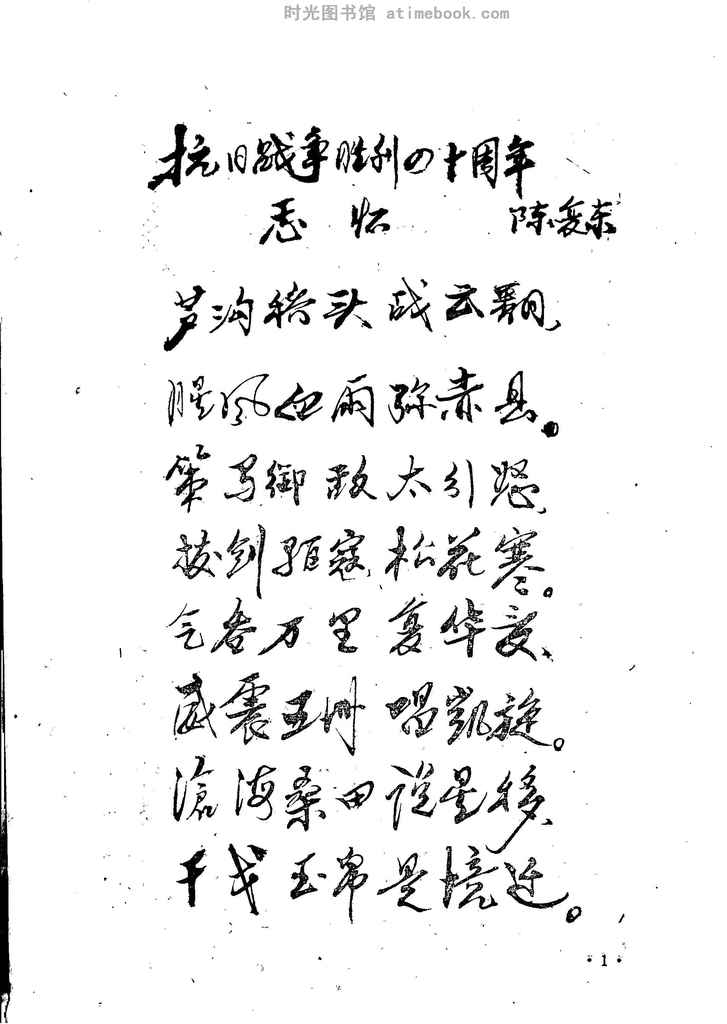 时光图书馆 atimebook.com
抗日战争胜利四十周年
志怀 陈复东
芦沟桥头战云翻，
腥风血雨弥赤县。
策马御敌太行怒，
拔剑驱寇松花寒。
气吞万里复华夏，
威震五州唱凯旋。
沧海桑田说星移，
干戈玉帛是境迁。
·1·